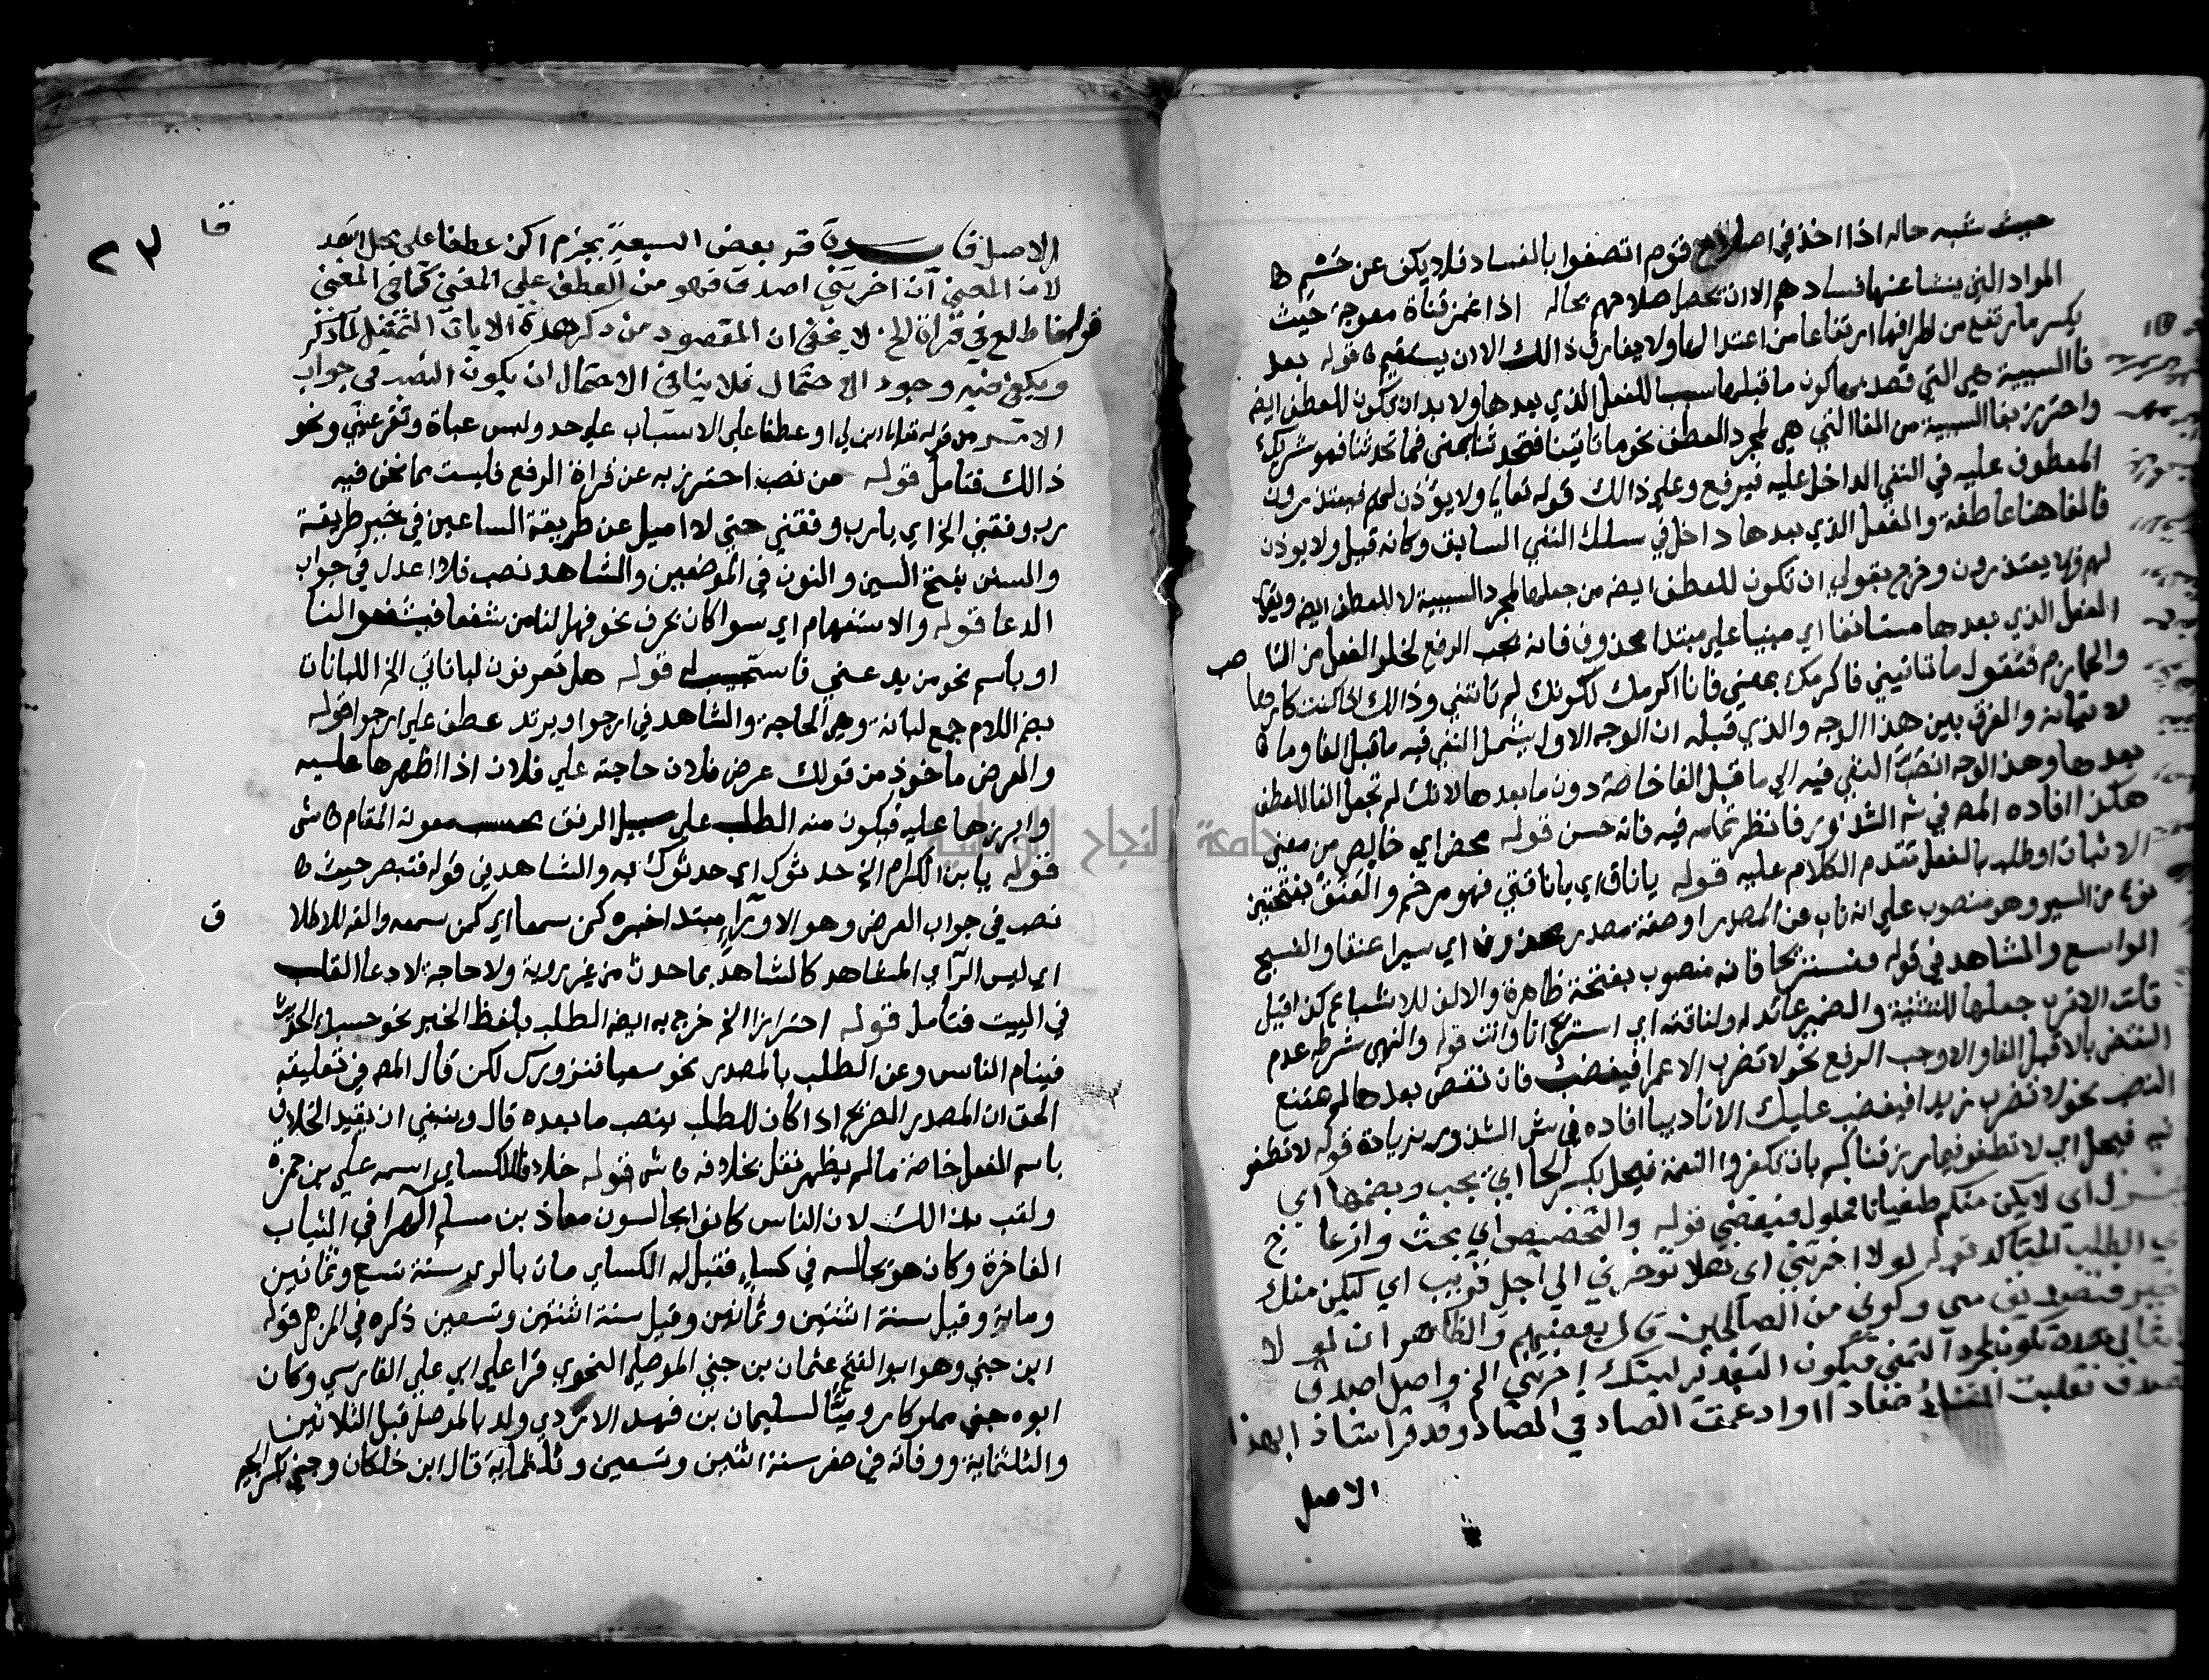 حيث شبه حاله اذا اخذ في اصلاح قوم اتصفوا بالفساد فلا يكف عن حسم
المواد التي ينشا عنها فسادهم الا ان يحصل صلاحهم بحاله اذا غمز قناة معوجة حيث
يكسر ما ارتفع من اطرافها ارتفاعا من اعتدالها ولا يفارق ذالك الا ان يستقيم قوله بعد
فا السببية هي التي قصد بها كون ما قبلها سببا للفعل الذي بعدها ولا بد ان يكون للعطف ايض
واحترز بفا السببية من الفا التي هي لمجرد العطف نحو ما تاتينا فتحدثنا بمعنى فما تحدثنا فهو شريك
المعطوف عليه في النفي الداخل عليه فيرفع وعلي ذالك قوله تعالي ولا يؤذن لهم فيعتذرون
فالفا هنا عاطفة والفعل الذي بعدها داخل في سلك النفي السابق وكانه قيل ولا يوذن
لهم فلا يعتذرون وخرج بقولي ان تكون للعطف ايض من جعلها لمجرد السببية لا للعطف ايض
الفعل الذي بعدها مستانفا اي مبنيا علي مبتدا محذوف فانه يجب الرفع لخلو الفعل من النا صب
والجازم فتقول ما تاتيني فاكرمك بمعني فانا اكرمك لكونك لم تاتني وذالك اذا كنت كارها
لاتيانه والفرق بين هذا الوجه والذي قبله ان الوجه الاول يشمل النفي فيه ما قبل الفا وما
بعدها وهذا الوجه انصب النفي فيه الي ما قبل الفا خاصة دون ما بعدها لانك لم تجعل الفا للعطف
هكذا افاده المص في شر الشذور فانظر تمامه فيه فانه حسن قوله محض اي خالص من معني
الاثبات او طلب بالفعل تقدم الكلام عليه قوله يا ناق اي يا ناقتي فهو مرخم والعنق بفتحتين
نوع من السير وهو منصوب علي انه ناب عن المصدر او صفة مصدر محذوف اي سيرا عنقا والفسيح
الواسع والشاهد في قوله فنستريحا فانه منصوب بفتحة ظاهرة والالف للاشباع كن اقيل
قلت الاقرب جعلها للتثنية والضمير عائد له ولناقته اي استريح انا وانت قوله والنهي شرطه عدم
النقض بالا قبل الفا والا وجب الرفع نحو لا تضرب الا عمرا فيغضب فان نقض بعدها لم يمتنع
النصب نحو لا تضرب زيدا فيغضب عليك الا تاديبا افاده في شر الشذور بزيادة قوله لا تطغو
فيه فيحل اي لا تطغو فيما رزقناكم بان تكفروا النعمة فيحل بكسر الحا اي يجب وبضمها اي
ينزل اي لا يكن منكم طغيان فحلول فيغضبي قوله والتحضيض اي بحث وازعا ج
في الطلب المتاكد قوله لولا اخرتني اي هلا توخرني الي اجل قريب اي ليكن منك
خير فتصديق مني وكوني من الصالحين قال بعضهم والظاهر ان لو لا
تكون لمجرد التمني فيكون التقدير ليتك اخرتني الخ واصل اصدق
تصدق فقلبت التاء صادا وادغمت الصاد في الصاد وقد قرا شاذا بهذا
الاصل
٢٣
الاصل قوله بعض السبعية بجزم اكن عطفا علي محل اصد
لان المعني ان اخرتني اصدق فهو من العطف علي المعني كما في المغني
قوله فاطلع في قراة الخ لا يخفي ان المقصود من ذكر هذة الايات التمثيل لما ذكر
ويكفي فيه وجود الاحتمال فلا ينافي الاحتمال ان يكون النصب في جواب
الامر من قوله تعالي ابن لي او عطفا علي الاسباب علي حد ولبس عباة وتقر عيني ونحو
ذالك فتامل قوله من نصب احترز به عن قراة الرفع فليست مما نحن فيه
رب وفقني الخ اي يا رب وفقني حتي لا اميل عن طريقة الساعين في خير طريقة
والسنن بفتح السين والنون في الموضعين والشاهد نصب فلا اعدل في جواب
الدعا قوله والاستفهام اي سوا كان بحرف نحو فهل لنا من شفعا فيشفعوا لنا
او باسم نحو من يدعني فاستجيب له قوله هل تعرفون لباناتي الخ اللبانات
بضم اللام جمع لبانة وهي الحاجة والشاهد في ارجوا ويرتد عطف علي ارجوا قوله
والعرض ماخوذ من قولك عرض فلان حاجته علي فلان اذا اظهرها عليه
وابرزها عليه فيكون منه الطلب علي سبيل الرفق بحسب معونة المقام ش
قوله يا ابن الكرام الخ حدثوك اي حدثوك به والشاهد في قوله فتبصر حيث
نصب في جواب العرض وهو الا وراء مبتدا خبره كمن سمعا اي كمن سمعه والفه للاطلا ق
اي ليس الرآي المشاهد كالشاهد بما حدث من غير روية ولا حاجة لادعا القلب
في البيت فتامل قوله احترازا الخ خرج به ايضا الطلب بلفظ الخبر نحو حسبك الحديث
فينام الناس وعن الطلب بالمصدر نحو سعيا فنزورك لكن قال المص في تعليقه
الحق ان المصدر الصريح اذا كان للطلب ينصب ما بعده قال وينبغي ان يقيد الخلاف
باسم الفعل خاصة ما لم يظهر نقل بخلافه ش قوله خلافا للكساي اسمه علي بن حمزة
ولقب بذالك لان الناس كانوا يجالسون معاذ بن مسلم الهرا في الثياب
الفاخرة وكان هو يجالسه في كساء فقيل له الكساي مات بالري سنة تسع وثمانين
وماية وقيل سنة اثنتين وثمانين وقيل سنة اثنتين وتسعين ذكره في المزهر قوله
ابن جني وهو ابو الفتح عثمان بن جني الموصلي النحوي قرا علي ابي علي الفارسي وكان
ابوه جني مملوكا روميا لسليمان بن فهد الازدي ولد بالموصل قبل الثلاثين
والثلثماية ووفاته في صفر سنة اثنين وتسعين وثلثماية قال ابن خلكان وجني بكسر الجيم
جامعة النجاح الوطنية